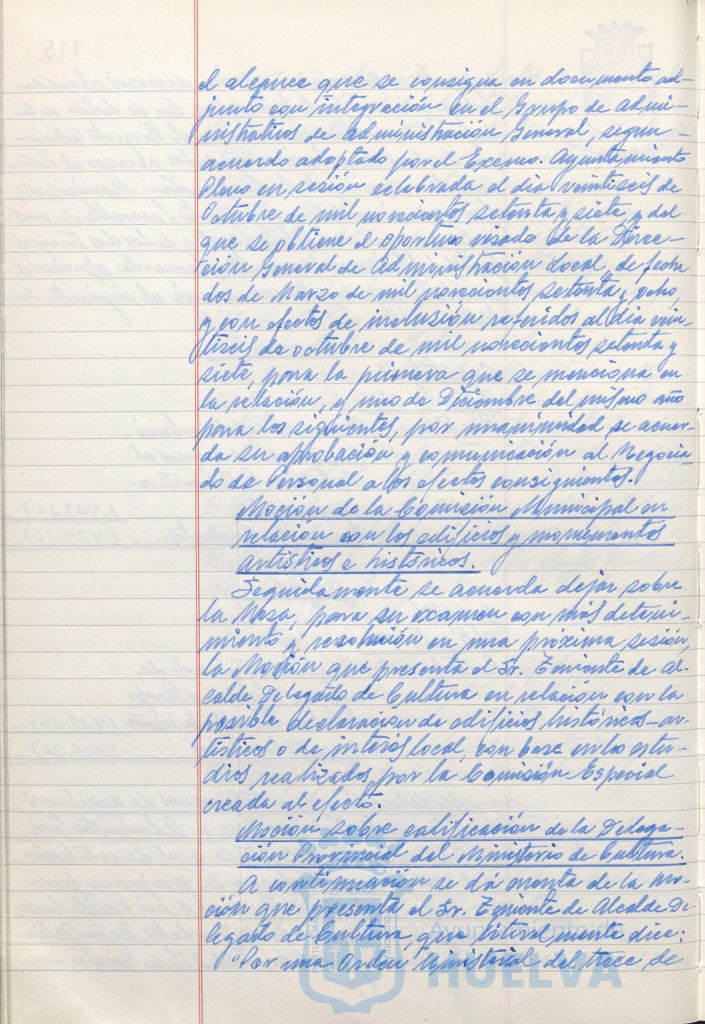 el alcance que se consigna en documento ad-
junto con integración en el Grupo de admi-
nistrativos de administración General, según
acuerdo adoptado por el Excmo. Ayuntamiento
Pleno en sesión celebrada el día veintiseis de
Octubre de mil novecientos setenta y siete y del
que se obtiene el oportuno visado de la Direc-
ción General de Administración Local, de fecha
dos de Marzo de mil novecientos setenta y ocho,
y con efectos de inclusión referidos al día vein-
tiseis de octubre de mil novecientos setenta y
siete, para la primera que se menciona en
la relación, y uno de Diciembre del mismo año
para los siguientes, por unanimidad se acuer-
da su aprobación y comunicación al Negocia-
do de Personal a los efectos consiguientes.
Moción de la Comisión Municipal en
relación con los edificios y monumentos
artísticos e históricos.
Seguidamente se acuerda dejar sobre
la Mesa, para su examen con más deteni-
miento y resolución en una próxima sesión,
la Moción que presenta el Sr. Teniente de Al-
calde Delegado de Cultura en relación con la
posible declaración de edificios históricos-ar-
tísticos o de interés local, con base en los estu-
dios realizados por la Comisión Especial
creada al efecto.
Moción sobre calificación de la Delega-
ción Provincial del Ministerio de Cultura.
A continuación se dá cuenta de la mo-
ción que presenta el Sr. Teniente de Alcalde De-
legado de Cultura, que literalmente dice:
"Por una Orden Ministerial del trece de
Ayuntamiento de
HUELVA